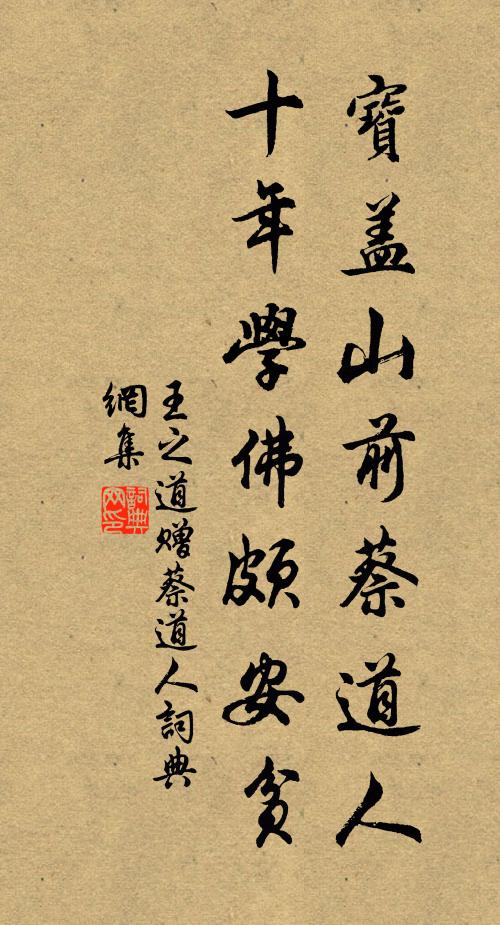 寶盖山前蔡道人
十年學佛頗安貧
王之道赠蔡道人詞典
網集
詞典
网印